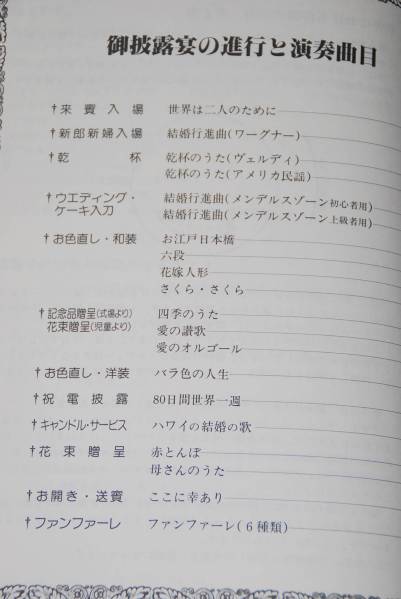 御披露宴の進行と演奏曲目
†来賓入場 世界は二人のために
†新郎新婦入場 結婚行進曲(ワーグナー)
†乾杯 乾杯のうた(ヴェルディ)
乾杯のうた(アメリカ民謡)
†ウエディング・ 結婚行進曲(メンデルスゾーン初心者用)
ケーキ入刀 結婚行進曲(メンデルスゾーン上級者用)
†お色直し・和装 お江戸日本橋
六段
花嫁人形
さくら・さくら
†記念品贈呈(式場より) 四季のうた
花束贈呈(児童より) 愛の讃歌
愛のオルゴール
†お色直し・洋装 バラ色の人生
†祝電披露 80日間世界一週
†キャンドル・サービス ハワイの結婚の歌
†花束贈呈 赤とんぼ
母さんのうた
†お開き・送賓 ここに幸あり
†ファンファーレ ファンファーレ(6種類)